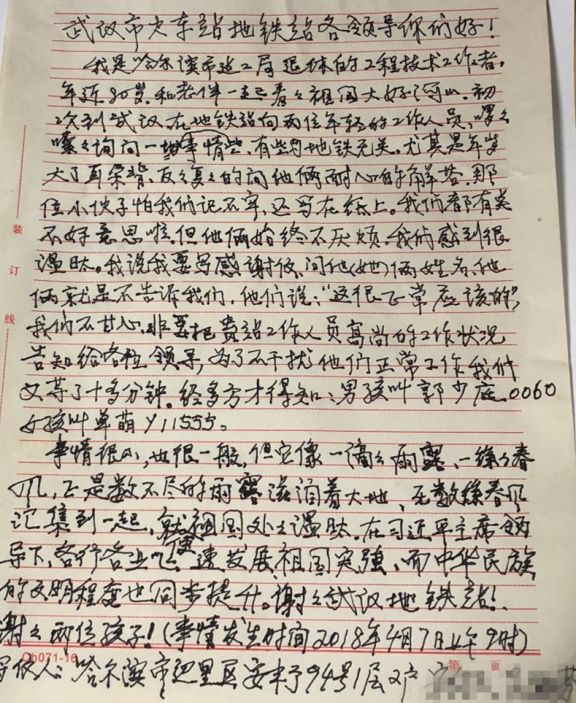 武汉市火车站地铁站各领导你们好！
我是哈尔滨市建工局退休的工程技术工作者，
年近80岁，和老伴一起看看祖国大好河山，初
次到武汉，在地铁站向两位年轻的工作人员，啰啰
嗦嗦询问一些事情，有些与地铁无关。尤其是年岁
大了耳朵背，反反复复的问他俩耐心的解答，那
位小伙子怕我们记不牢，还写在纸上。我们都有类
不好意思啦，但他俩始终不厌烦，我们感到很
温暖。我说我要写感谢信，问他(她)俩姓名，他
俩就是不告诉我们，他们说："这很正常应该的"，
我们不甘心，非要把贵站工作人员高尚的工作状况
告知给各位领导，为了不干扰他们正常工作我们
又等了十多分钟，经多方才得知：男孩叫郭少 0060
女孩叫单萌 Y11555。
事情很小，也很一般，但它像一滴滴雨露、一缕缕春
风，正是数不尽的雨露滋润着大地，无数缕春风
汇集到一起，就祖国处处温暖。在习近平主席领
导下，各行各业飞速发展，祖国富强，而中华民族
的文明程度也同步提升。谢谢武汉地铁站！
谢谢两位孩子！(事情发生时间2018年4月7日上午9时)
写信人：哈尔滨市 里区安 94号1层2户
装
订
线
Qb071-16
第 页